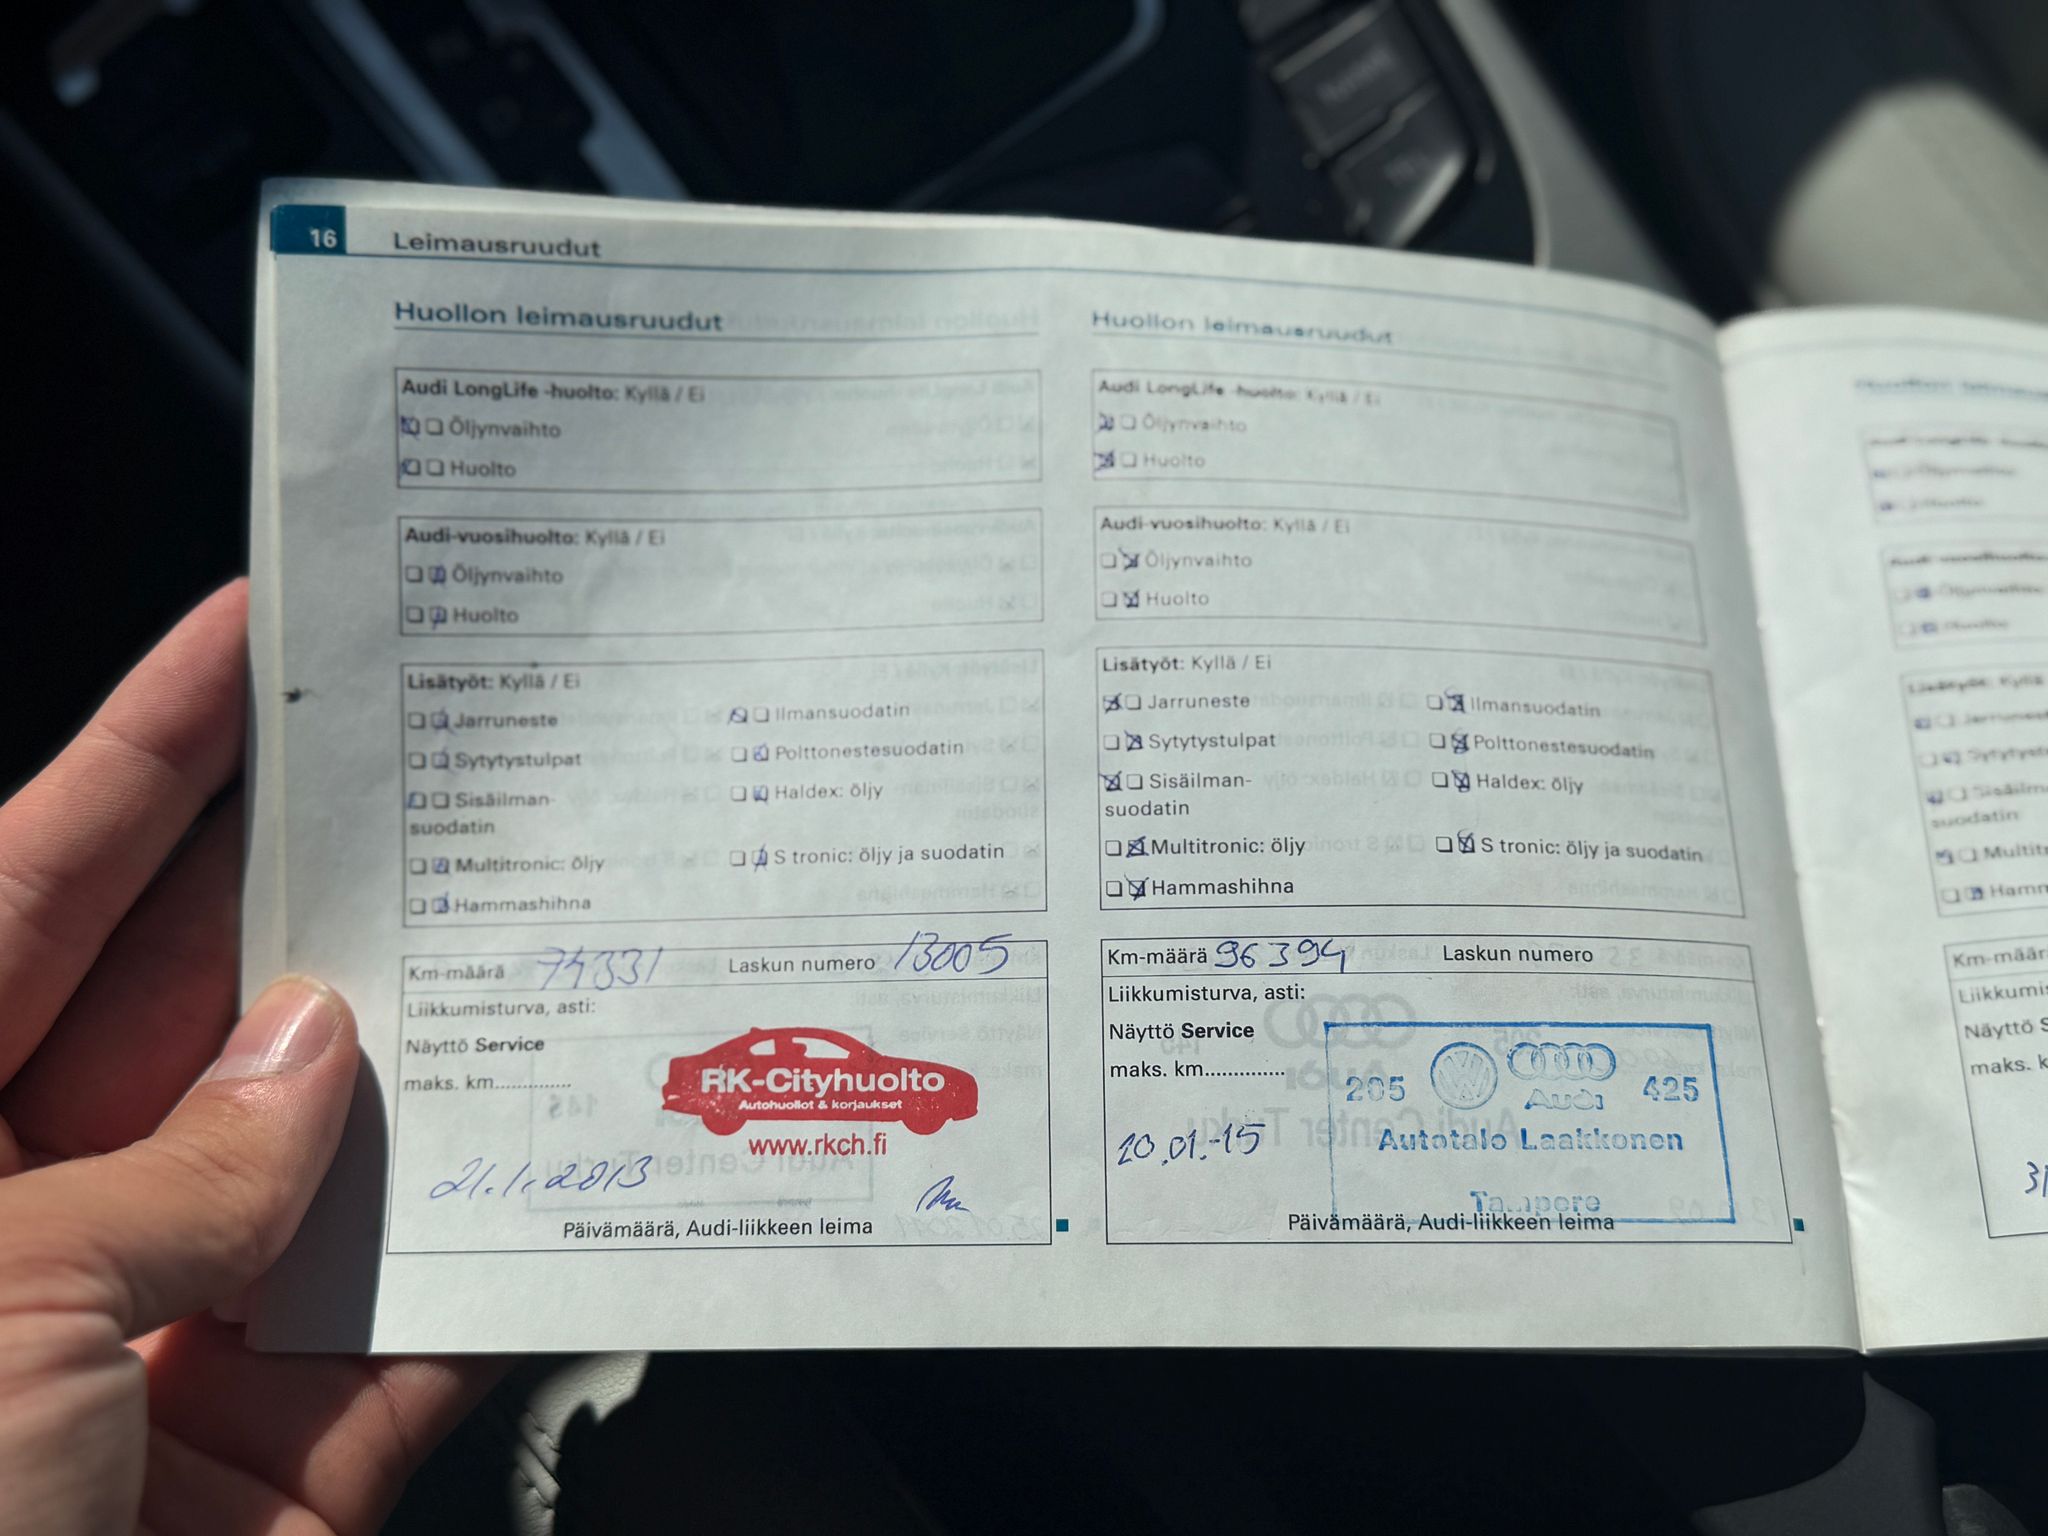 16 Leimausruudut
Huollon leimausruudut
Audi LongLife -huolto: Kyllä / Ei
Öljynvaihto
Huolto
Audi-vuosihuolto: Kyllä / Ei
Öljynvaihto
Huolto
Lisätyöt: Kyllä / Ei
Jarruneste
Ilmansuodatin
Sytytystulpat
Polttonestesuodatin
Sisäilman-
suodatin
Haldex: öljy
Multitronic: öljy
S tronic: öljy ja suodatin
Hammashihna
Km-määrä 74331 Laskun numero 13005
Liikkumisturva, asti:
Näyttö Service
maks. km..............
RK-Cityhuolto
Autohuollot & korjaukset
www.rkch.fi
21.1.2013
Päivämäärä, Audi-liikkeen leima
Huollon leimausruudut
Audi LongLife -huolto: Kyllä / Ei
Öljynvaihto
Huolto
Audi-vuosihuolto: Kyllä / Ei
Öljynvaihto
Huolto
Lisätyöt: Kyllä / Ei
Jarruneste
Ilmansuodatin
Sytytystulpat
Polttonestesuodatin
Sisäilman-
suodatin
Haldex: öljy
Multitronic: öljy
S tronic: öljy ja suodatin
Hammashihna
Km-määrä 96394 Laskun numero
Liikkumisturva, asti:
Näyttö Service
maks. km..............
205 VW Audi 425
Autotalo Laakkonen
Tampere
20.01.-15
Päivämäärä, Audi-liikkeen leima
Km-määrä
maks. km